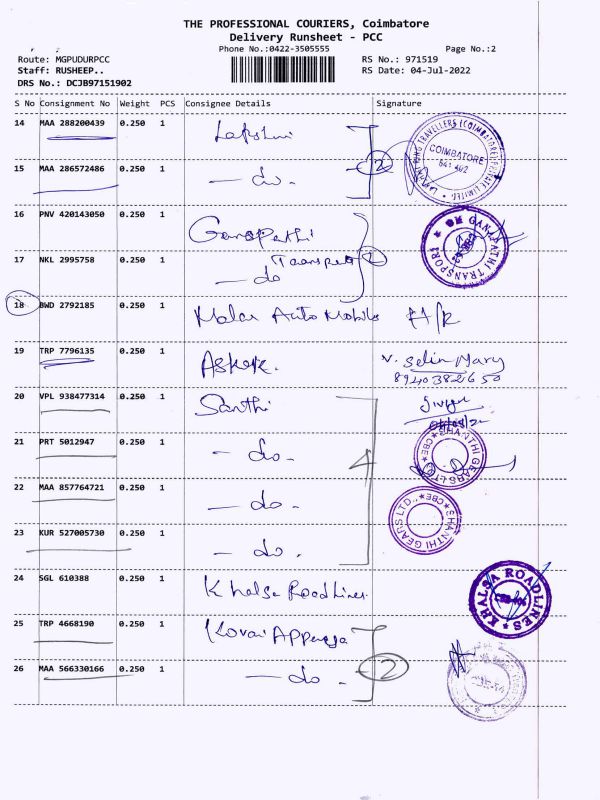 THE PROFESSIONAL COURIERS, Coimbatore
Delivery Runsheet - PCC
Phone No.:0422-3505555
Page No.:2
Route: MGPUDURPCC
RS No.: 971519
Staff: RUSHEEP..
RS Date: 04-Jul-2022
DRS No.: DCJB97151902
S No Consignment No Weight PCS Consignee Details Signature
14 MAA 288200439 0.250 1 Lakshmi
COIMBATORE
641 402
15 MAA 286572486 0.250 1 - do -
2
16 PNV 420143050 0.250 1 Ganapathi
Transport
GANAPATHI TRANSPORT
17 NKL 2995758 0.250 1 - do
2
18 BWD 2792185 0.250 1 Malar Auto Mobile
19 TRP 7796135 0.250 1 Ashok. V. Selin Mary
8940382650
20 VPL 938477314 0.250 1 Santhi
21 PRT 5012947 0.250 1 - do -
4
SHANTHI GEARS LTD., CBE
22 MAA 857764721 0.250 1 - do -
SHANTHI GEARS LTD., CBE
23 KUR 527005730 0.250 1 - do.
24 SGL 610388 0.250 1 Khalsa Roadlines
KHALSA ROADLINES
25 TRP 4668190 0.250 1 Kovai
26 MAA 566330166 0.250 1 - do -
2